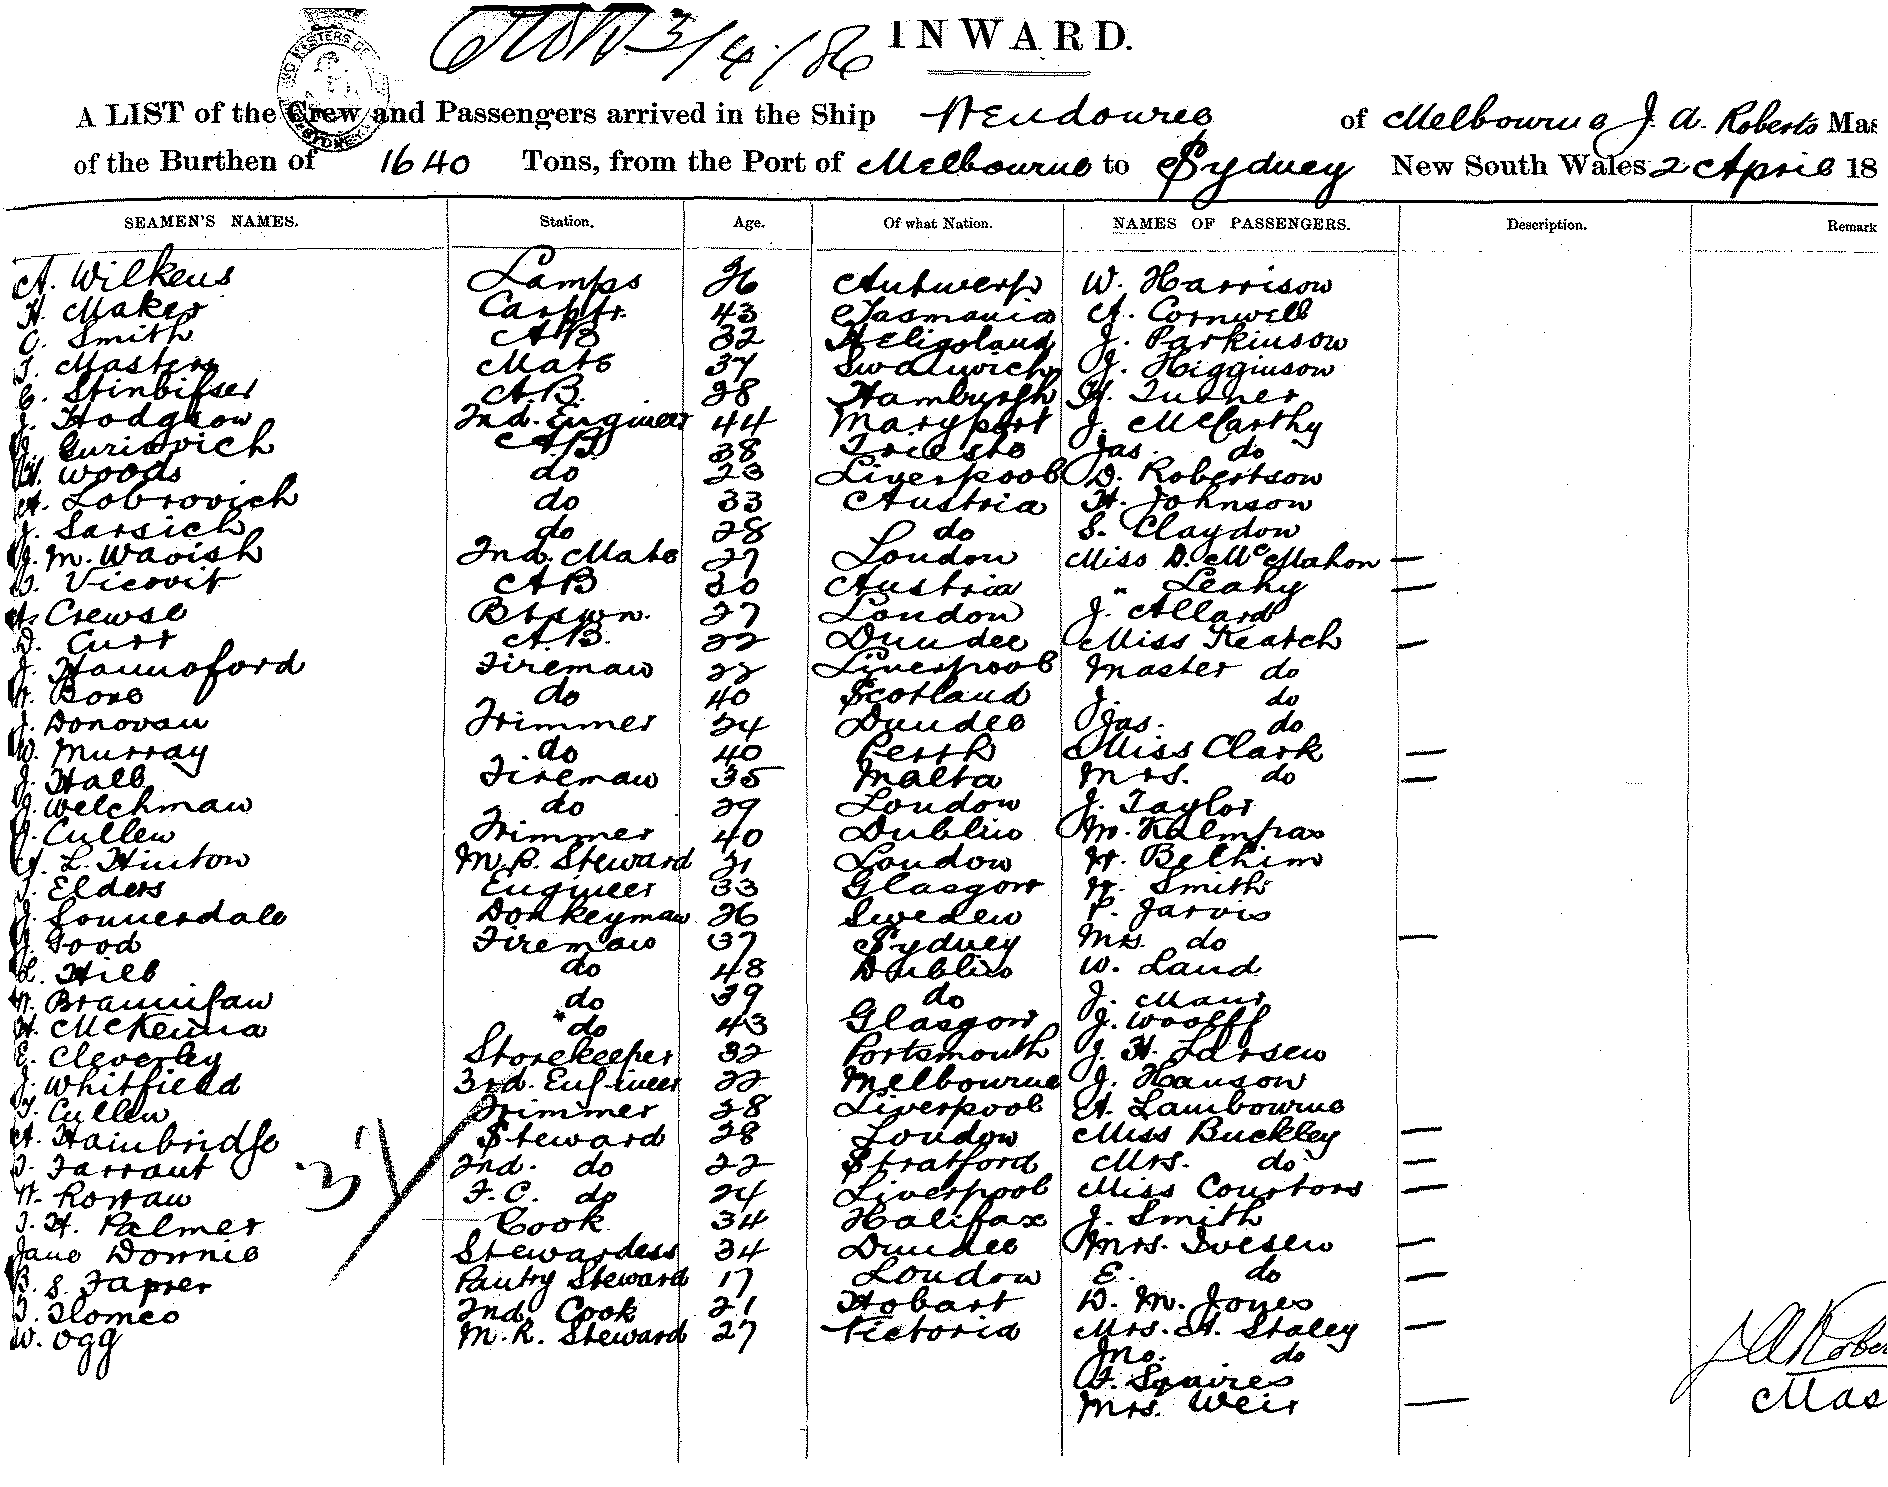 3/4/86 INWARD.
A LIST of the Crew and Passengers arrived in the Ship Wendouree of Melbourne J. A. Roberts Mas
of the Burthen of 1640 Tons, from the Port of Melbourne to Sydney New South Wales 2 April 18
SEAMEN'S NAMES. Station. Age. Of what Nation. NAMES OF PASSENGERS. Description. Remark
A. Wilkens Lamps 26 Antwerp W. Harrison
H. Maker Carptr. 43 Tasmania A. Cornwell
C. Smith AB 32 Heligoland J. Parkinson
T. Masters Mate 37 Swanwich J. Higginson
C. Stinbifser A.B. 28 Hamburgh H. Turner
J. Hodgson 2nd. Engineer 44 Maryport J. McCarthy
J. Gurisovich AB 38 Trieste Jas. do
H. Woods do 23 Liverpool D. Robertson
A. Lobrovich do 33 Austria H. Johnson
J. Sarsich do 28 do S. Claydon
J. M. Wavish 2nd. Mate 27 London Miss D. McMahon —
Vicovit AB 30 Austria " Leahy —
A. Crewse Btswn. 27 London J. Allard
D. Curr A.B. 22 Dundee Miss Keatch —
J. Hannoford Fireman 22 Liverpool Master do
Bone do 40 Scotland J. do
J. Donovan Trimmer 24 Dundee Jas. do
W. Murray do 40 Perth Miss Clark —
J. Hall Fireman 35 Malta Mrs. do —
J. Welchman do 29 London J. Taylor
J. Cullen Trimmer 40 Dublin M. Kalmpax
L. Hinton M. R. Steward 21 London H. Belhim
T. Elders Engineer 33 Glasgow H. Smith
J. Sonnerdale Donkeyman 26 Sweden P. Jarvis
J. Good Fireman 37 Sydney Mrs. do —
L. Hill do 48 Dublin W. Land
Brannifan do 39 do J. Manr
H. McKenna do 43 Glasgow J. Woolff
E. Cleverley Storekeeper 32 Portsmouth J. H. Larsen
J. Whitfield 3rd. Engineer 22 Melbourne J. Hanson
T. Cullen Trimmer 28 Liverpool A. Lambourne
A. Hainbridge Steward 28 London Miss Buckley —
T. Farrant 2nd. do 22 Stratford Mrs. do —
Rowan F. C. do 24 Liverpool Miss Courtors —
T. H. Palmer Cook 34 Halifax J. Smith
Jane Downie Stewardess 34 Dundee Mrs. Ivesen —
B. S. Taprer Pantry Steward 17 London E. do —
T. Flomeo 2nd. Cook 21 Hobart D. M. Jones
W. Ogg M. R. Steward 27 Victoria Mrs. A. Staley —
Jno. do
F. Squires
Mrs. Weir —
J A Rober
Mas